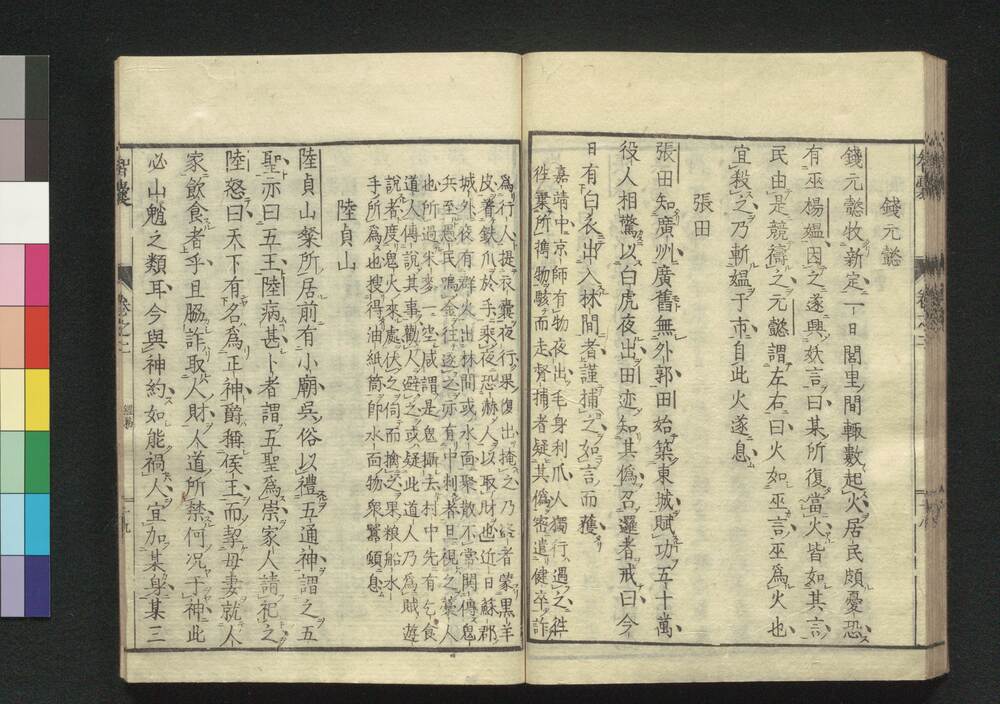 錢元懿
錢元懿牧新定一日閭里間輙數起火居民頗憂恐
有巫楊媼因之遂興妖言曰某所復當火皆如其言
民由是競禱之元懿謂左右曰火如巫言巫爲火也
宜殺之乃斬媼于市自此火遂息
張田
張田知廣州廣舊無外郭田始築東城賦功五十萬
役人相驚以白虎夜出田迹知其僞召邏者戒曰今
日有白衣出入林間者謹捕之如言而獲
嘉靖中京師有物夜出毛身利爪人獨行遇之往
往棄所擕物駭而走督捕者疑其僞密遣健卒詐
爲行人提衣囊夜行果復出掩之乃盜者蒙黑羊
皮着鉄爪於手乘夜恐赫人以取財也近日蘇郡
城外夜有群火出林間或水面聚散不常閧傳鬼
兵至愚民鳴金往逐之亦有中刺者旦視之藁人
也所過米麥一空咸謂是鬼攝去村中先有乞食
道人傳說其事勸人避之或疑此道人乃爲賊遊
說者度鬼火來處伏人伺而擒之果粮船水
手所爲也搜得油紙筒卽水面物衆囂頓息
陸貞山
陸貞山粲所居前有小廟吳俗以禮五通神謂之五
聖亦曰五王陸病甚卜者謂五聖爲祟家人請祀之
陸怒曰天下有名爲正神爵稱侯王而挈母妻就人
家飲食者乎且脇詐取人財人道所禁何况于神此
必山魈之類耳今與神約如能禍人宜加某身某三
智囊
卷之二